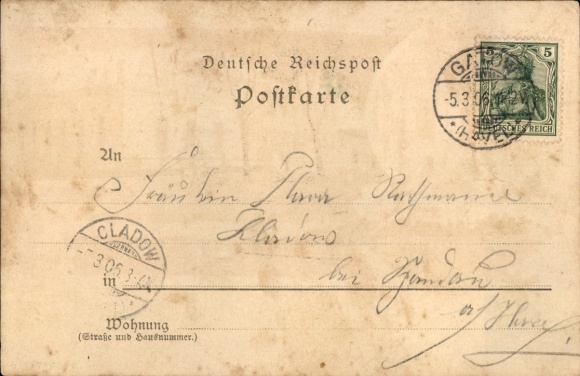 Deutsche Reichspost
Postkarte
5
DEUTSCHES REICH
GATOW
-5.3.06.
* (HAVEL) *
An
Fräulein Klara Rathmann
Kladow
bei Spandau
a/Havel
CLADOW
3.06.
in
Wohnung
(Straße und Hausnummer.)